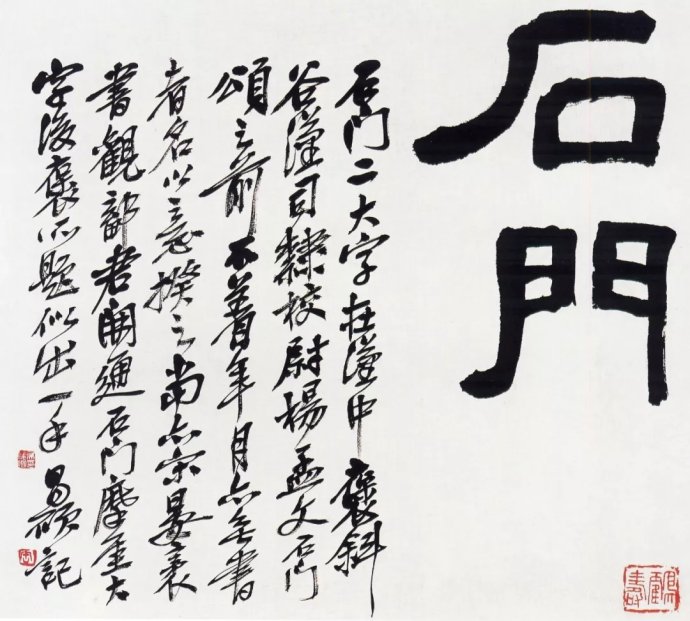 石門
石门二大字在漢中褒斜
谷漢司隸校尉楊孟文石门
頌之前不著年月亦无書
者名以意揆之當亦宋晏袤
書觀鄐君開通石门摩崖大
字後袤所題似出一手 記